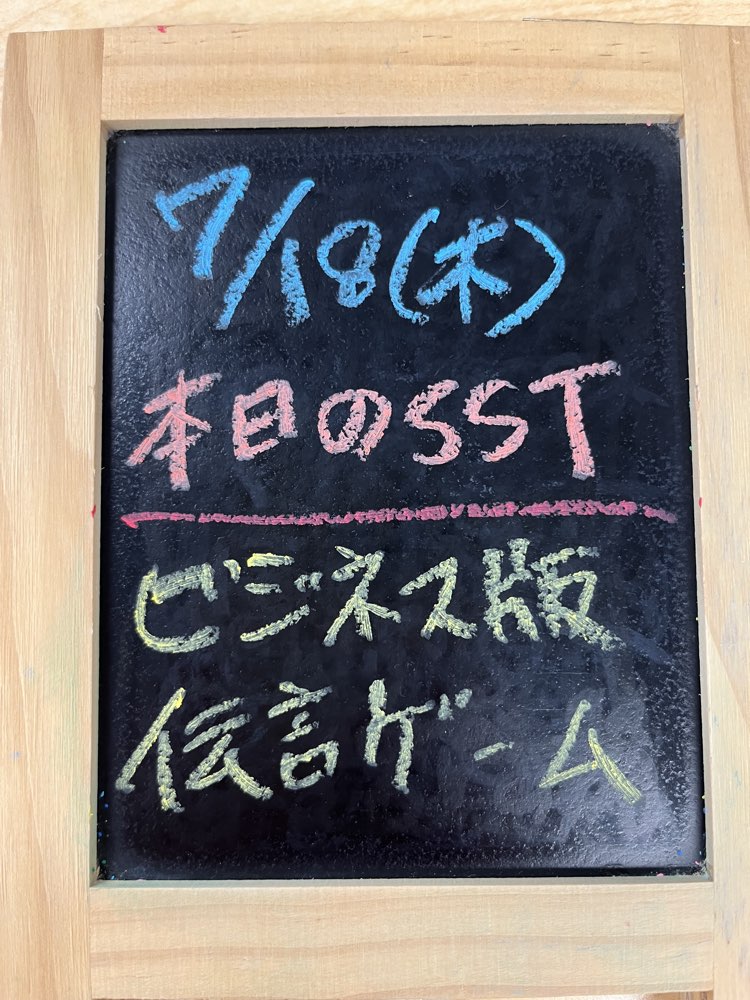 7/18(木)
本日のSST
ビジネス版
伝言ゲーム